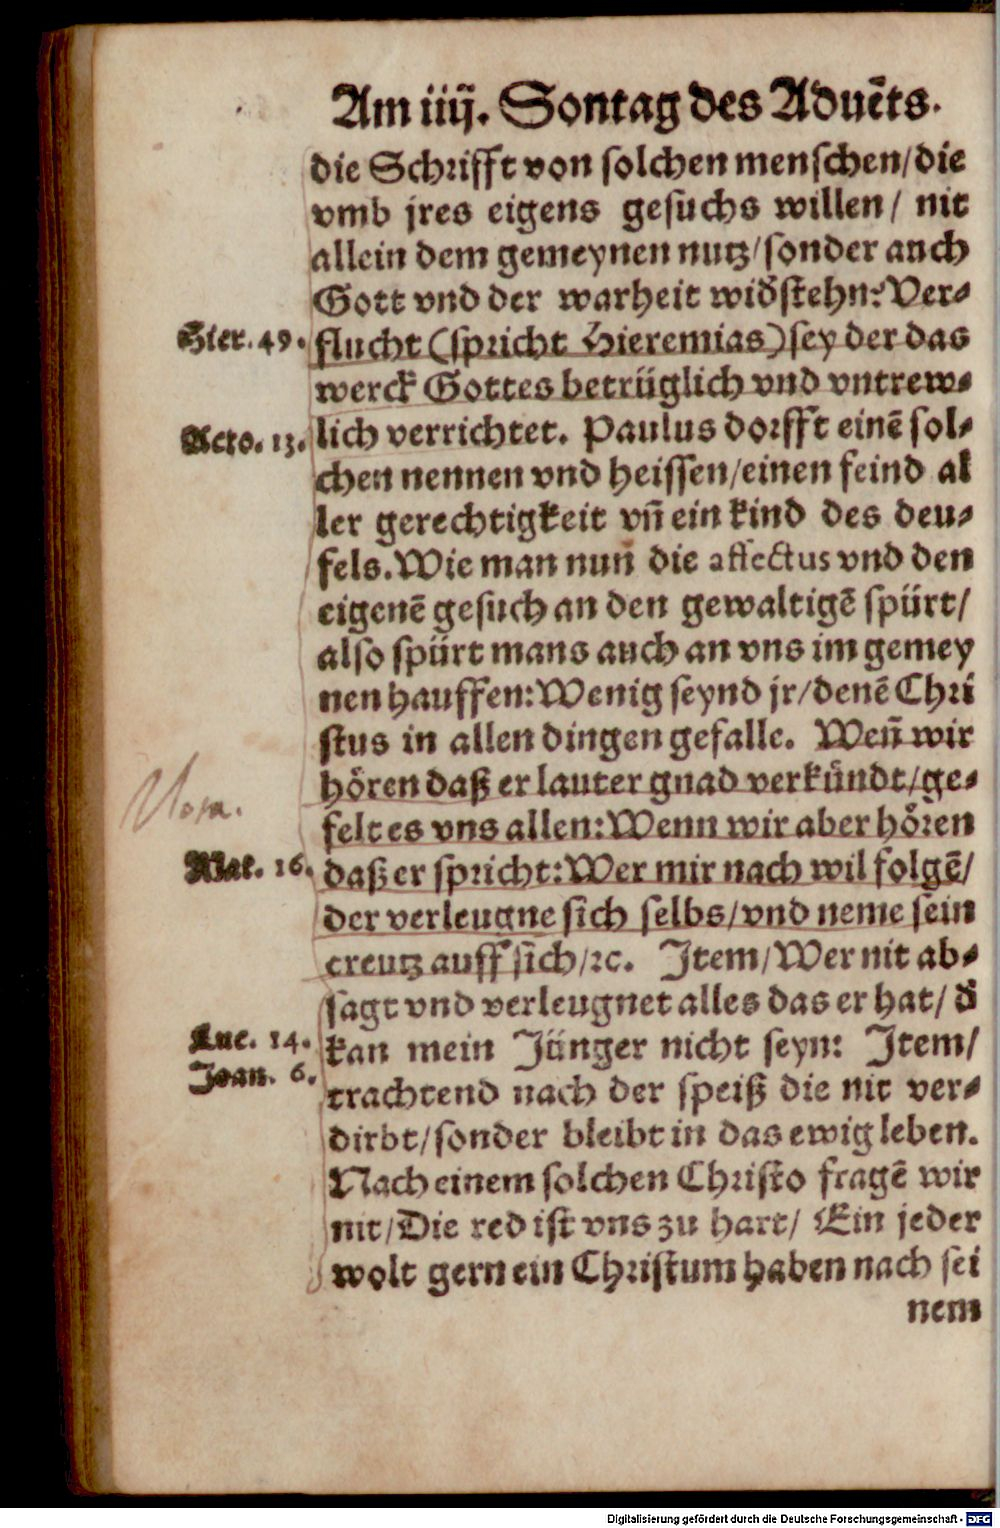 Am iiij. Sontag des Aduēts.
die Schrifft von solchen menschen/die
vmb jres eigens gesuchs willen/ nit
allein dem gemeynen nutz/sonder auch
Gott vnd der warheit widďstehn: Ver-
Hier. 49. flucht (spricht Hieremias) sey der das
werck Gottes betrüglich vnd vntrew-
Acto. 13. lich verrichtet. Paulus dorfft einē sol-
chen nennen vnd heissen/einen feind al
ler gerechtigkeit vn̄ ein kind des deu-
fels. Wie man nun die affectus vnd den
eigenē gesuch an den gewaltigē spürt/
also spürt mans auch an vns im gemey
nen hauffen: Wenig seynd jr/denē Chri
stus in allen dingen gefalle. Wen̄ wir
hören daß er lauter gnad verkündt/ge-
Nota.
felt es vns allen: Wenn wir aber hören
Mat. 16. daß er spricht: Wer mir nach wil folgē/
der verleugne sich selbs/vnd neme sein
creutz auff sich/ꝛc. Item/Wer nit ab-
sagt vnd verleugnet alles das er hat/ď
Luc. 14. kan mein Jünger nicht seyn: Item/
Joan. 6. trachtend nach der speiß die nit ver-
dirbt/sonder bleibt in das ewig leben.
Nach einem solchen Christo fragē wir
nit/Die red ist vns zu hart/ Ein jeder
wolt gern ein Christum haben nach sei
nem
Digitalisierung gefördert durch die Deutsche Forschungsgemeinschaft - DFG